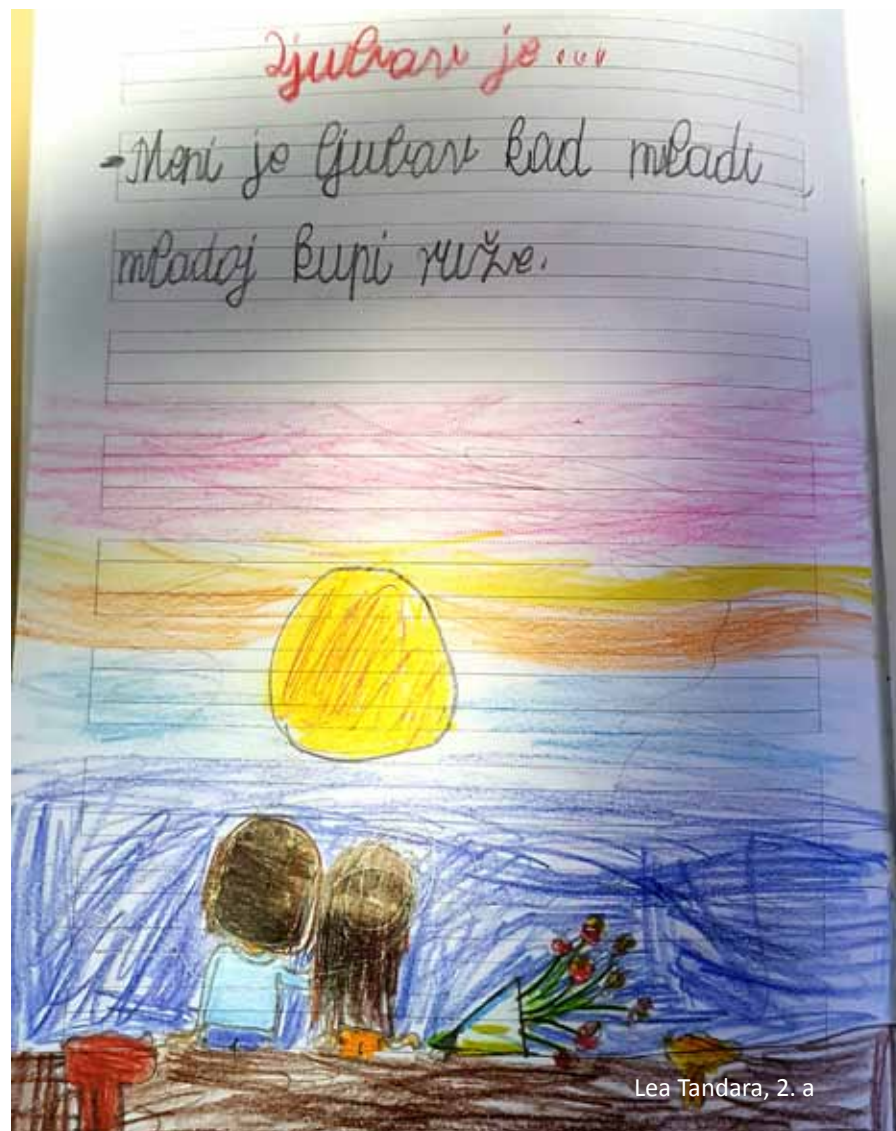 Ljubav je...
-Meni je ljubav kad mladi
mladoj kupi ruže.
Lea Tandara, 2. a